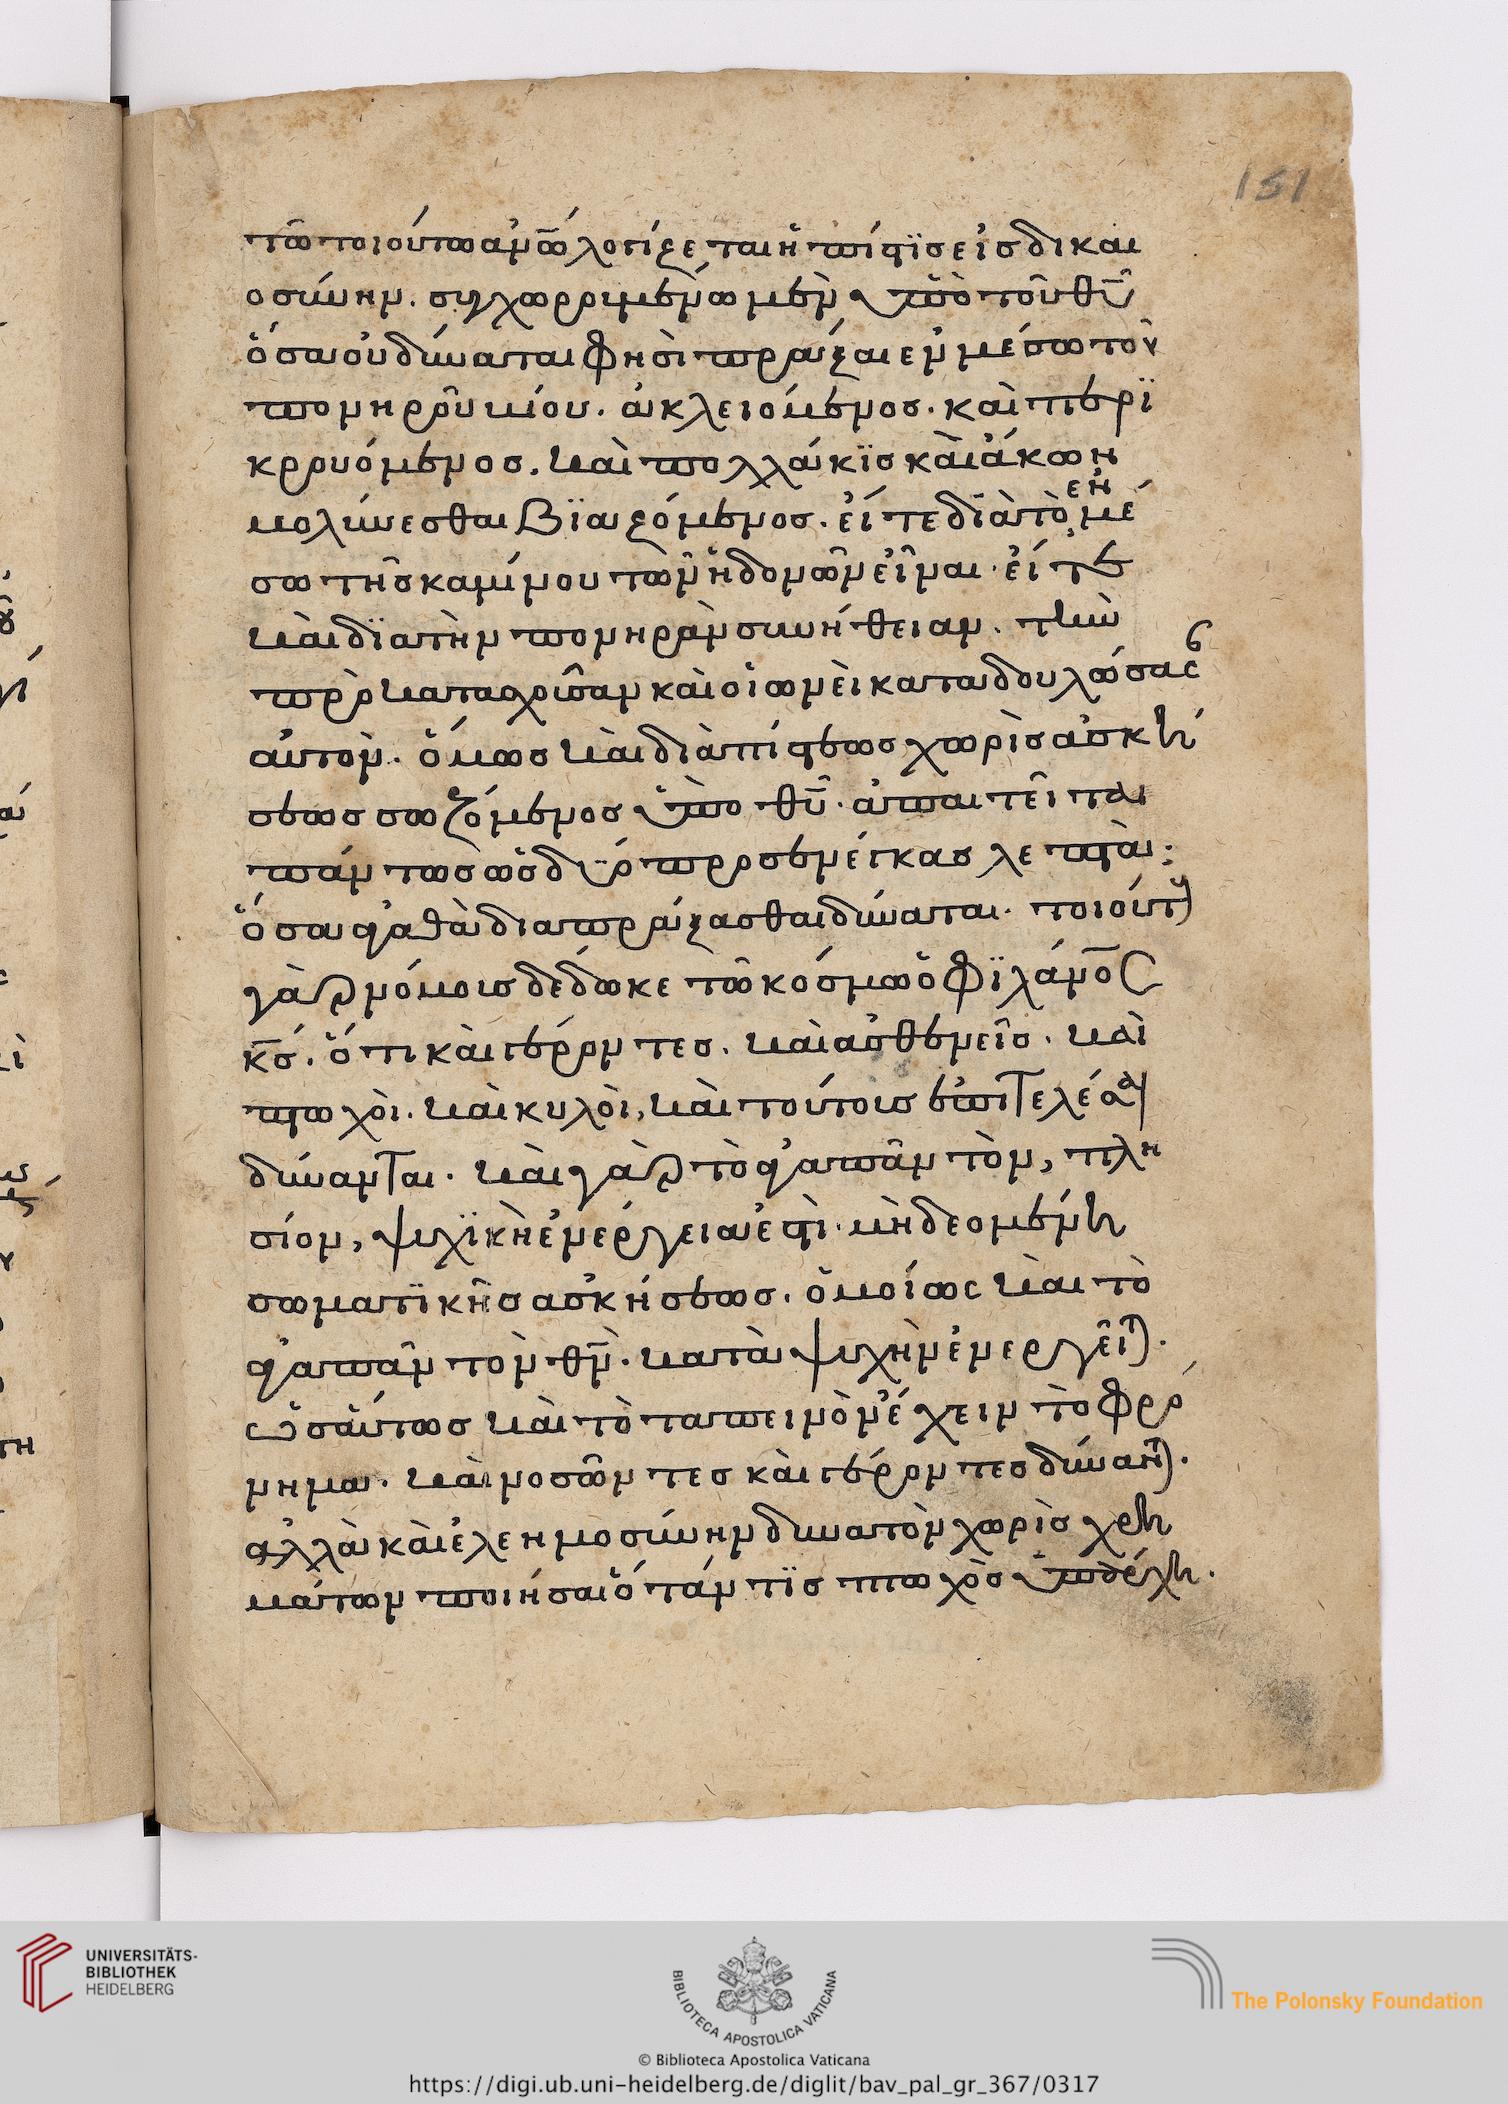 151
τῶ τοιούτω ἀνω λογίζεται ἡ πίστϊς εἰς δικαι
οσύνην. συγχωρουμένω μὲν ὑπὸ τοῦ θυ
ὅσα οὐ δύναται φησὶ πράξαι ἐν μέσω τοῦ
πονηροῦ κόσμου. κλειόμενος. καὶ περϊ
κρουόμενος. καὶ πολλάκϊς καὶ ἄκων
μολύνεσθαι βϊαζόμενος. εἴτε δϊὰ τὸ ἐν μέ
σω τῆς καμίνου τῶν ἡδονῶν εἶναι. εἴτε
καὶ δϊὰ τὴν πονηρὰν συνήθειαν. τὴν
προκαταχρώσαν καὶ οἱωνεὶ καταδουλώσασ
αὐτὸν. ὅμως καὶ διὰ πίστεως χωρὶς ἀσκή
σεως σωζόμενος ὑπὸ θυ. ἀπαιτεῖται
πάντως ὧδε προσενέγκαι λεπτὰ:
ὅσα ἀγαθὰ διαπράξασθαι δύναται. τοιούτους
γὰρ νόμοις δέδωκε τῶ κόσμω ὁ φϊλάνος
κς. ὅτι καὶ γέροντες. καὶ ἀσθενεῖς. καὶ
πτωχοὶ. καὶ κυλοὶ, καὶ τούτοις ἐπιτελέσαι
δύνανται. καὶ γὰρ τὸ ἀγαπᾶν τὸν, πλη
σίον, ψυχϊκὴ ἐνέργεια ἐστὶ. μὴ δεομένη
σωματϊκῆς ἀσκήσεως. ὁμοίως καὶ τὸ
ἀγαπᾶν τὸν θν. κατὰ ψυχὴν ἐνεργεῖται.
ὡσαύτως καὶ τὸ ταπεινὸν ἔχειν τὸ φρό
νημα. καὶ νοσοῦντες καὶ γέροντες δύνανται.
ἀλλὰ καὶ ἐλεημοσύνην δυνατὸν χωρὶς χρη
μάτων ποιῆσαι ὅτάν τϊς πτωχὸς ὑποδέχη.
UNIVERSITÄTS-
BIBLIOTHEK
HEIDELBERG
BIBLIOTECA APOSTOLICA VATICANA
The Polonsky Foundation
© Biblioteca Apostolica Vaticana
https://digi.ub.uni-heidelberg.de/diglit/bav_pal_gr_367/0317